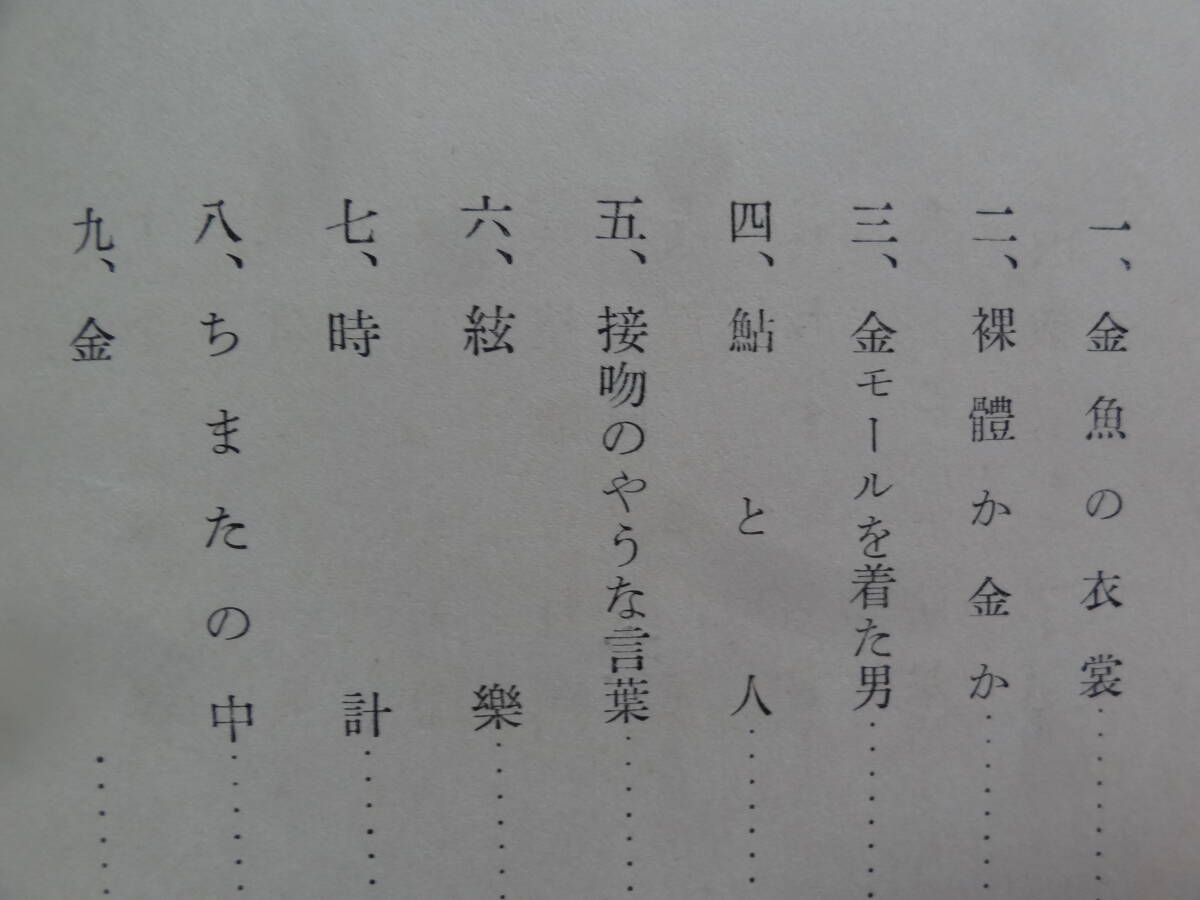 一、金魚の衣裳……
二、裸體か金か……
三、金モールを着た男……
四、鮎と人……
五、接吻のやうな言葉……
六、絃樂……
七、時計……
八、ちまたの中……
九、金……